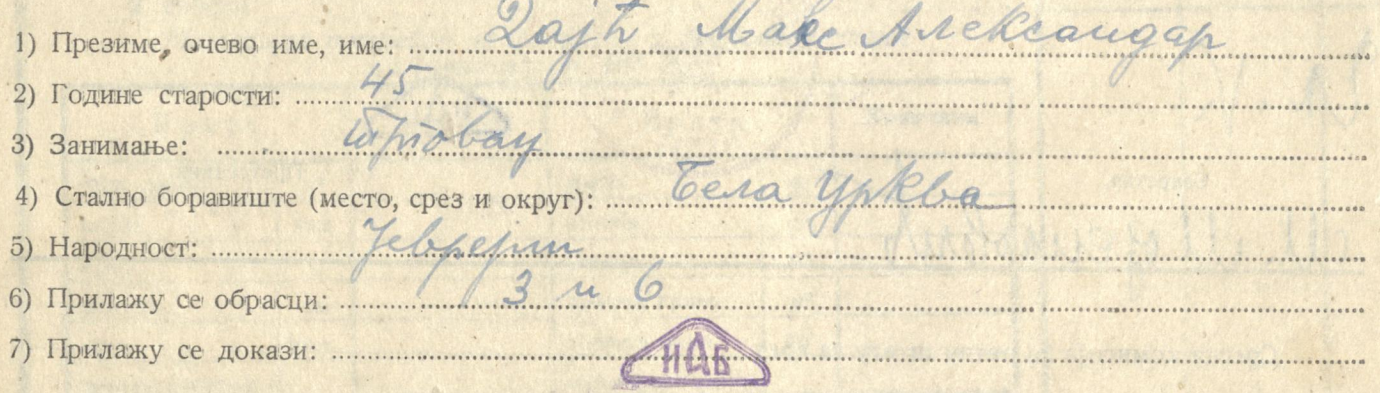 1) Презиме, очево име, име: Дајћ Макс Александар
2) Године старости: 45
3) Занимање: трговац
4) Стално боравиште (место, срез и округ): Бела Црква
5) Народност: Јеврејин
6) Прилажу се обрасци: 3 и 6
7) Прилажу се докази:
ИАБ